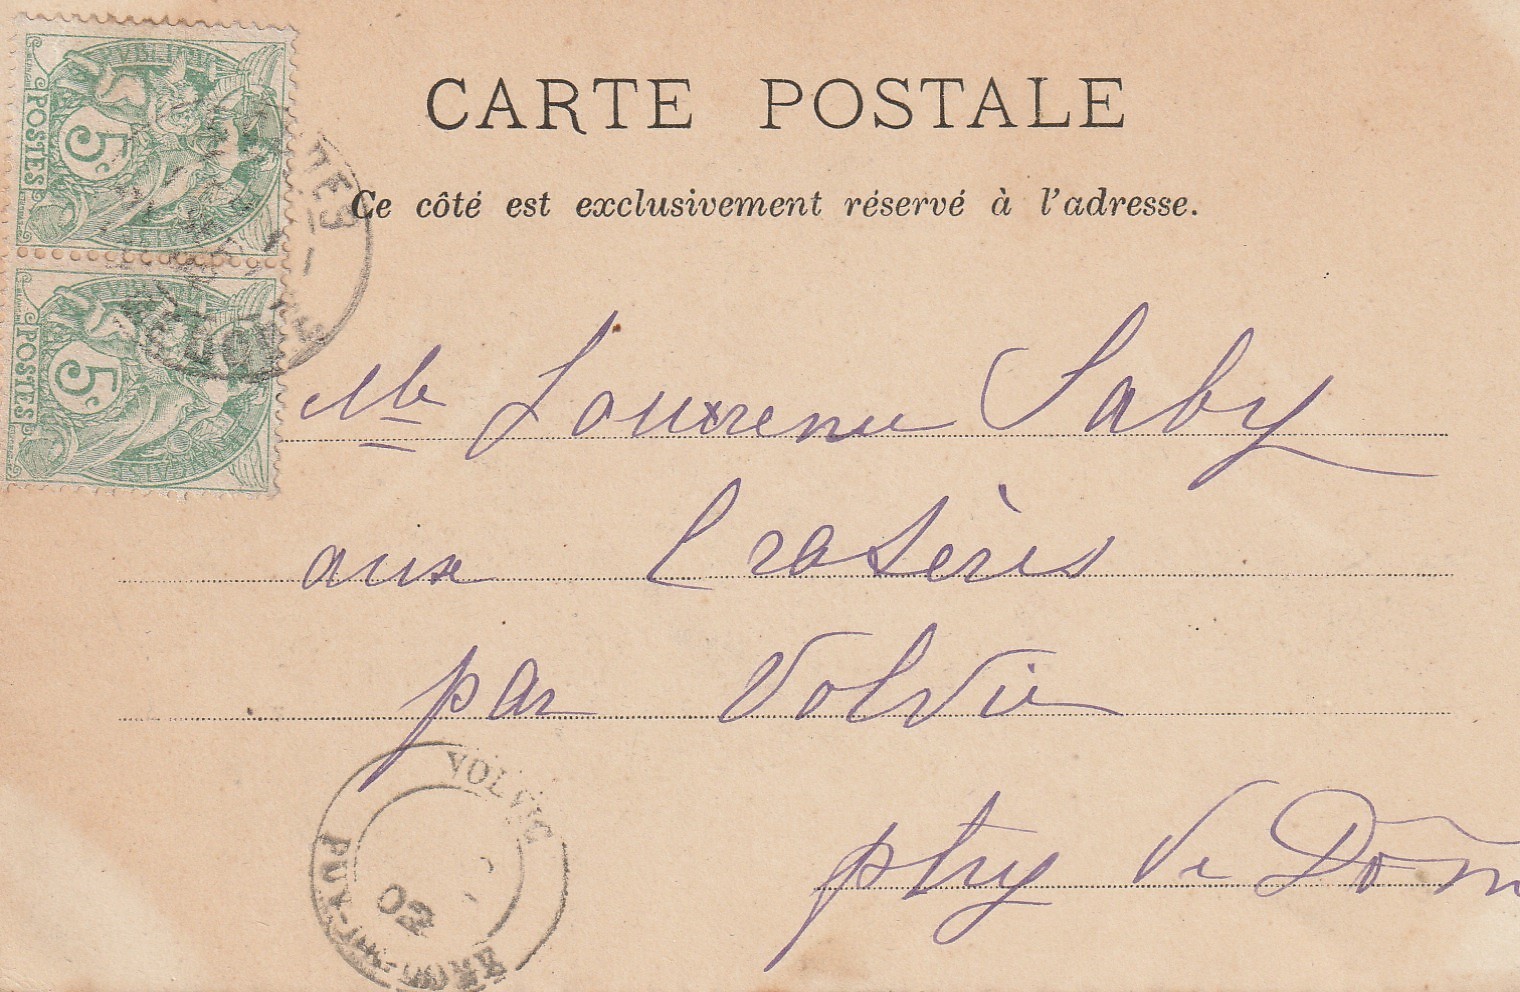 CARTE POSTALE
Ce côté est exclusivement réservé à l'adresse.
POSTES 5c
POSTES 5c
Mle Saby
aux Cratères
par Volvic
de Dôm
VOLVIC
PUY-DE-DOME
02